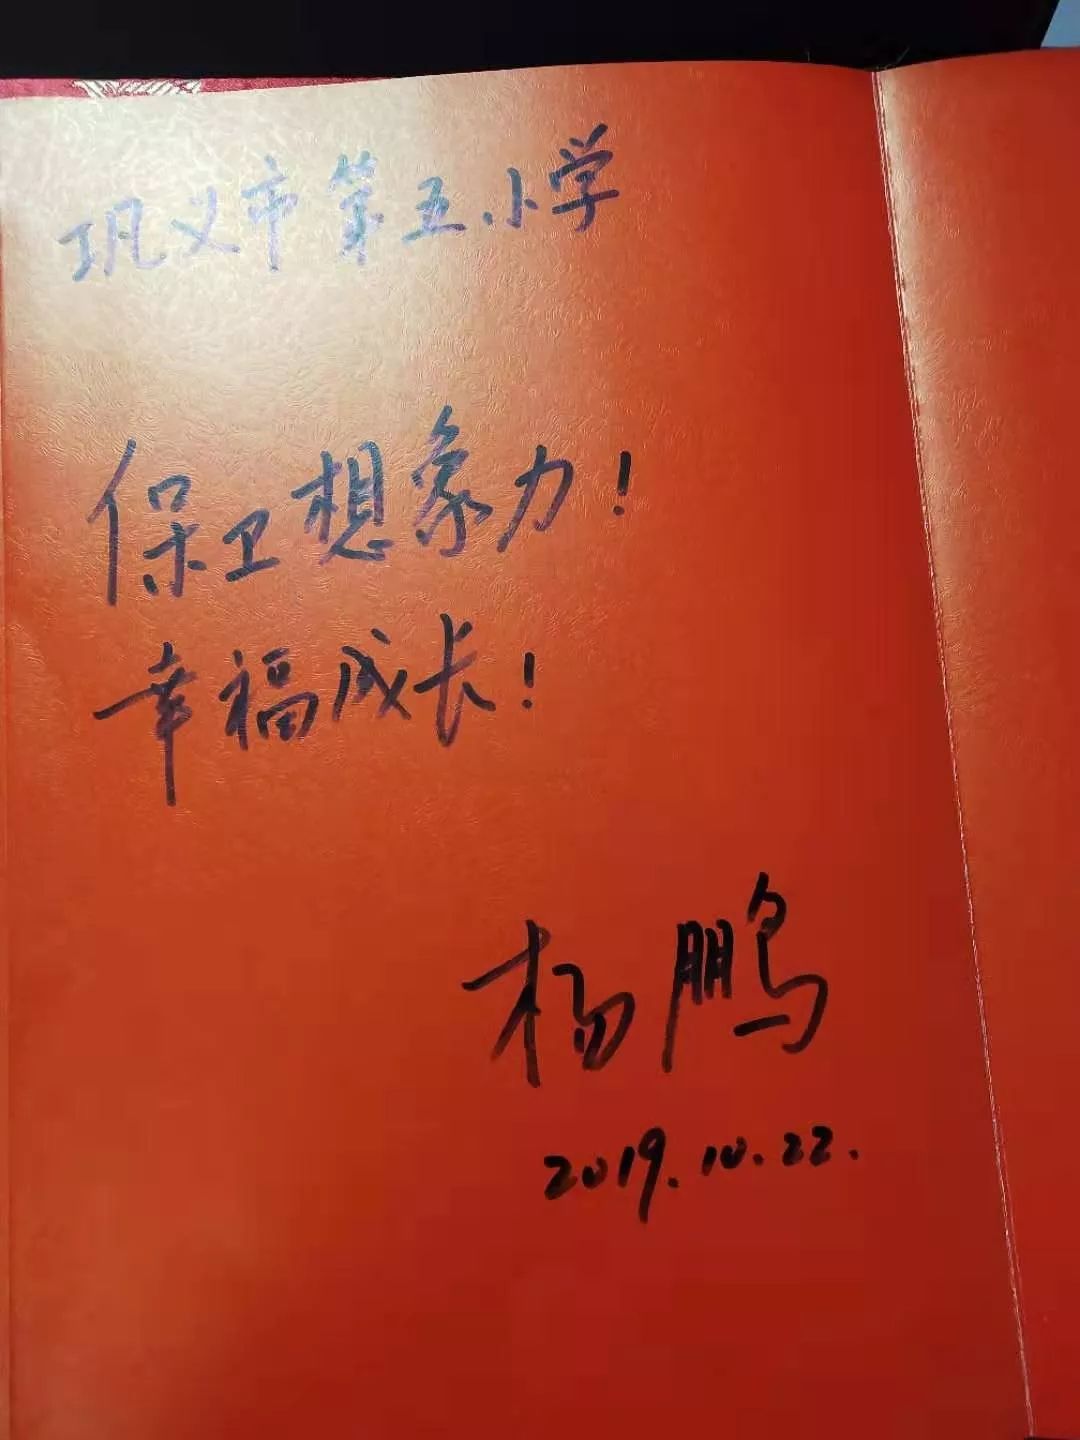 巩义市第五小学
保卫想象力！
幸福成长！
杨鹏
2019.10.22.